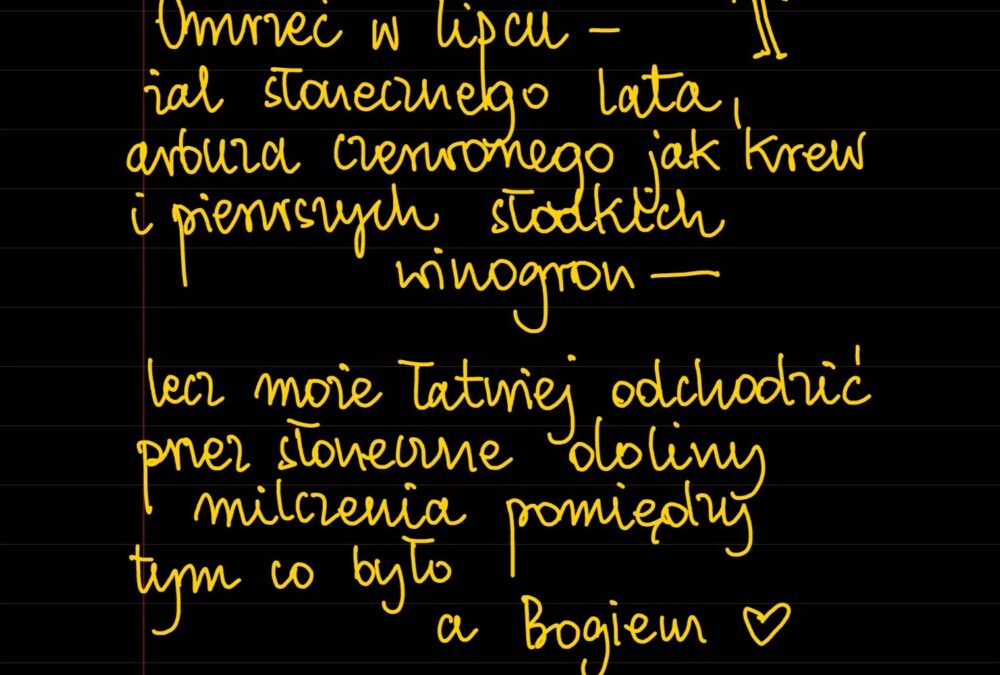 Umrzeć w lipcu –
żal słonecznego lata,
arbuza czerwonego jak krew
i pierwszych słodkich
winogron —
lecz może łatwiej odchodzić
przez słoneczne doliny
milczenia pomiędzy
tym co było
a Bogiem ♡